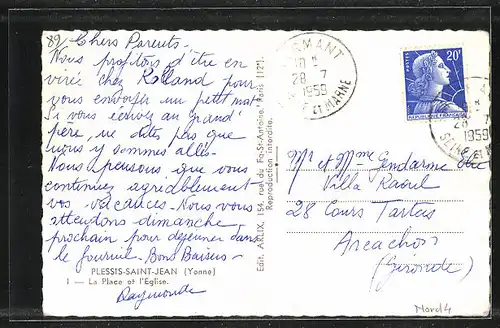 82 Chers Parents.
Nous profitons d'être en
virée chez Rolland pour
vous envoyer un petit mot
Si vous écrivez au grand'
père, ne dites pas que
nous y sommes allés.
Nous pensons que vous
continuez agréablement
vos vacances. Nous vous
attendons dimanche
prochain pour déjeuner dans
le fournil. Bons Baisers
PLESSIS-SAINT-JEAN (Yonne)
1 — La Place et l'Eglise.
Raymonde
Edit. ARLIX, 154, rue du Fg-St-Antoine, Paris (12e).
Reproduction interdite.
28 7
1959
ET MARNE
POSTES
20F
REPUBLIQUE FRANÇAISE
1959
Mr et Mme Gendarme
Villa Raoul
28 Cours Tartas
Arcachon
(Gironde)